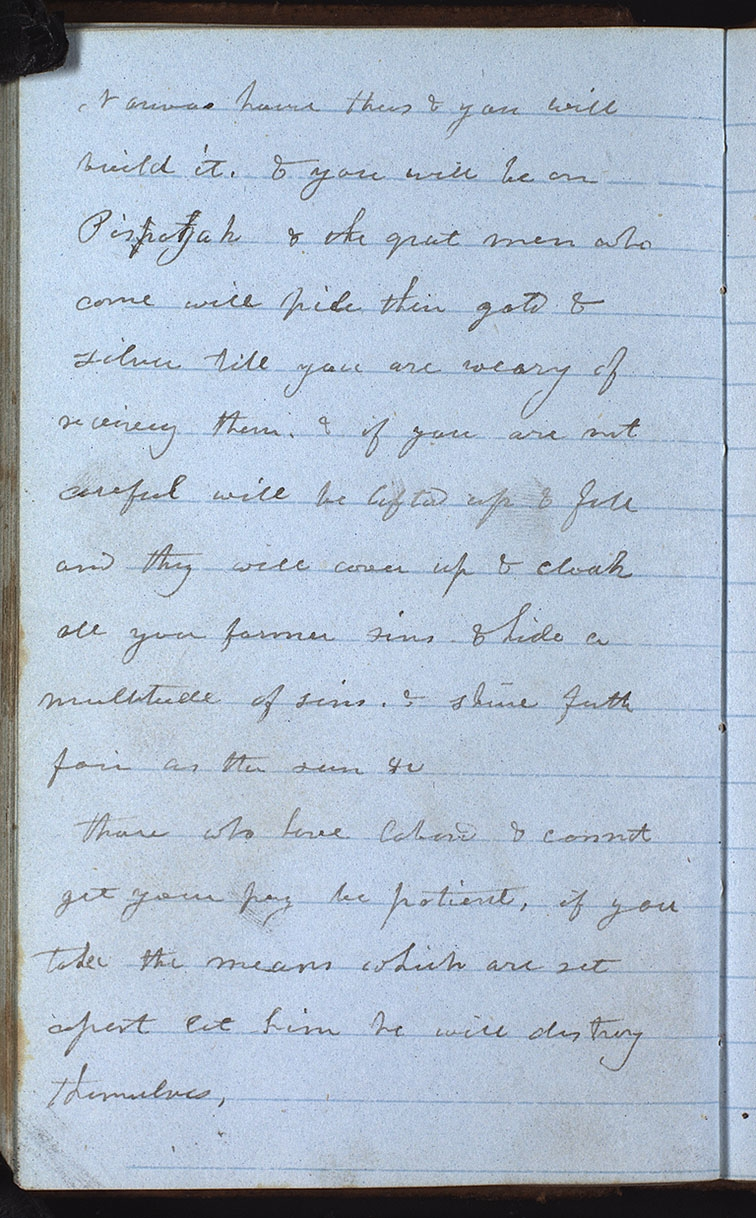 Nauvoo house thus & you will
build it. & you will be on
Pisgah & the great men who
come will pile their gold &
silver till you are weary of
receiveg them. & if you are not
careful will be lifted up & fall
and they will cover up & cloak
all you former sins & hide a
multitude of sins. & shine forth
fair as the sun &c
those who have labord & cannot
get your pay be patient, if you
take the means which are set
apart let him he will destroy
themselves,